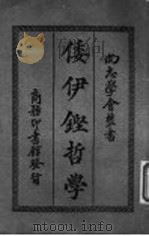 尚志學會叢書
倭伊鏗哲學
商務印書館發行
mtoou.info